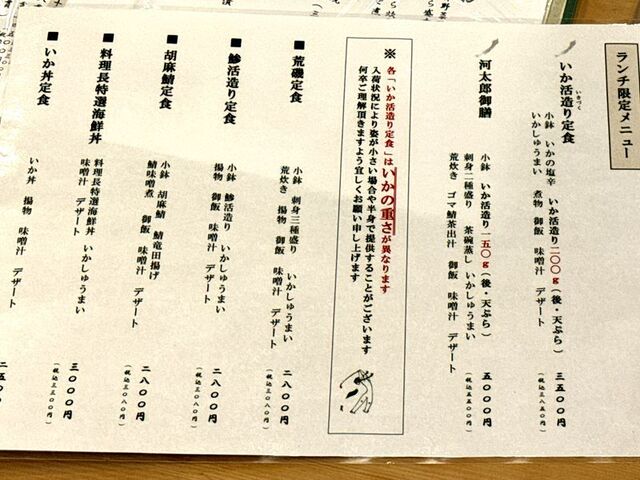 ランチ限定メニュー
いか活造り定食
いきづく
小鉢 いかの塩辛 いか活造り二〇〇g(後・天ぷら)
いかしゅうまい 煮物 御飯 味噌汁 デザート
三五〇〇円
(税込三八五〇円)
河太郎御膳
小鉢 いか活造り一五〇g(後・天ぷら)
刺身二種盛り 茶碗蒸し いかしゅうまい
荒炊き ゴマ鯖茶出汁 御飯 味噌汁 デザート
五〇〇〇円
(税込五五〇〇円)
※
各「いか活造り定食」はいかの重さが異なります
入荷状況により姿が小さい場合や半身で提供することがございます
何卒ご理解頂きますよう宜しくお願い申し上げます
■荒磯定食
小鉢 刺身三種盛り いかしゅうまい
荒炊き 揚物 御飯 味噌汁 デザート
二八〇〇円
(税込三〇八〇円)
■鯵活造り定食
小鉢 鯵活造り いかしゅうまい
揚物 御飯 味噌汁 デザート
二八〇〇円
(税込三〇八〇円)
■胡麻鯖定食
小鉢 胡麻鯖 鯖竜田揚げ
鯖味噌煮 御飯 味噌汁 デザート
二八〇〇円
(税込三〇八〇円)
■料理長特選海鮮丼
料理長特選海鮮丼 いかしゅうまい
味噌汁 デザート
三〇〇〇円
(税込三三〇〇円)
■いか丼定食
いか丼 揚物 味噌汁 デザート
二五〇〇